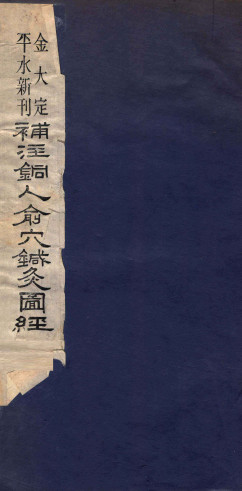 金大定
平水新刊
補注銅人俞穴鍼灸圖經